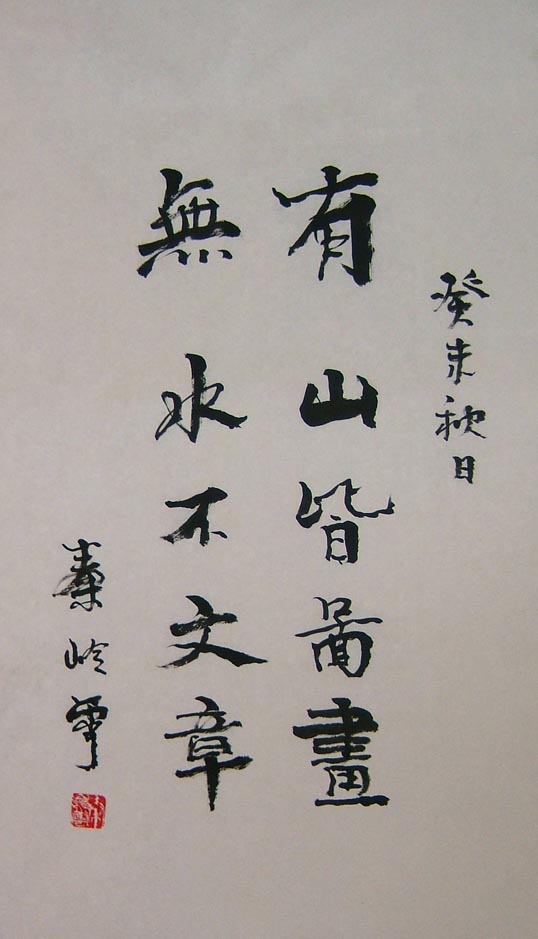 癸未秋日
有山皆啚畫
無水不文章
秦岭